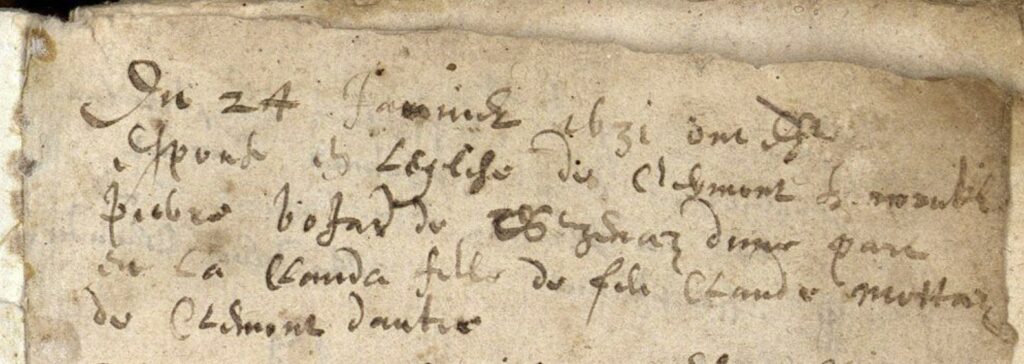 Du 24 Januier 1631 ont esté
espousé en Leglise de Clermont h.
pierre bosfar de dune part
et La Clauda fille de feu Claude mottaz
de Clermont dautre